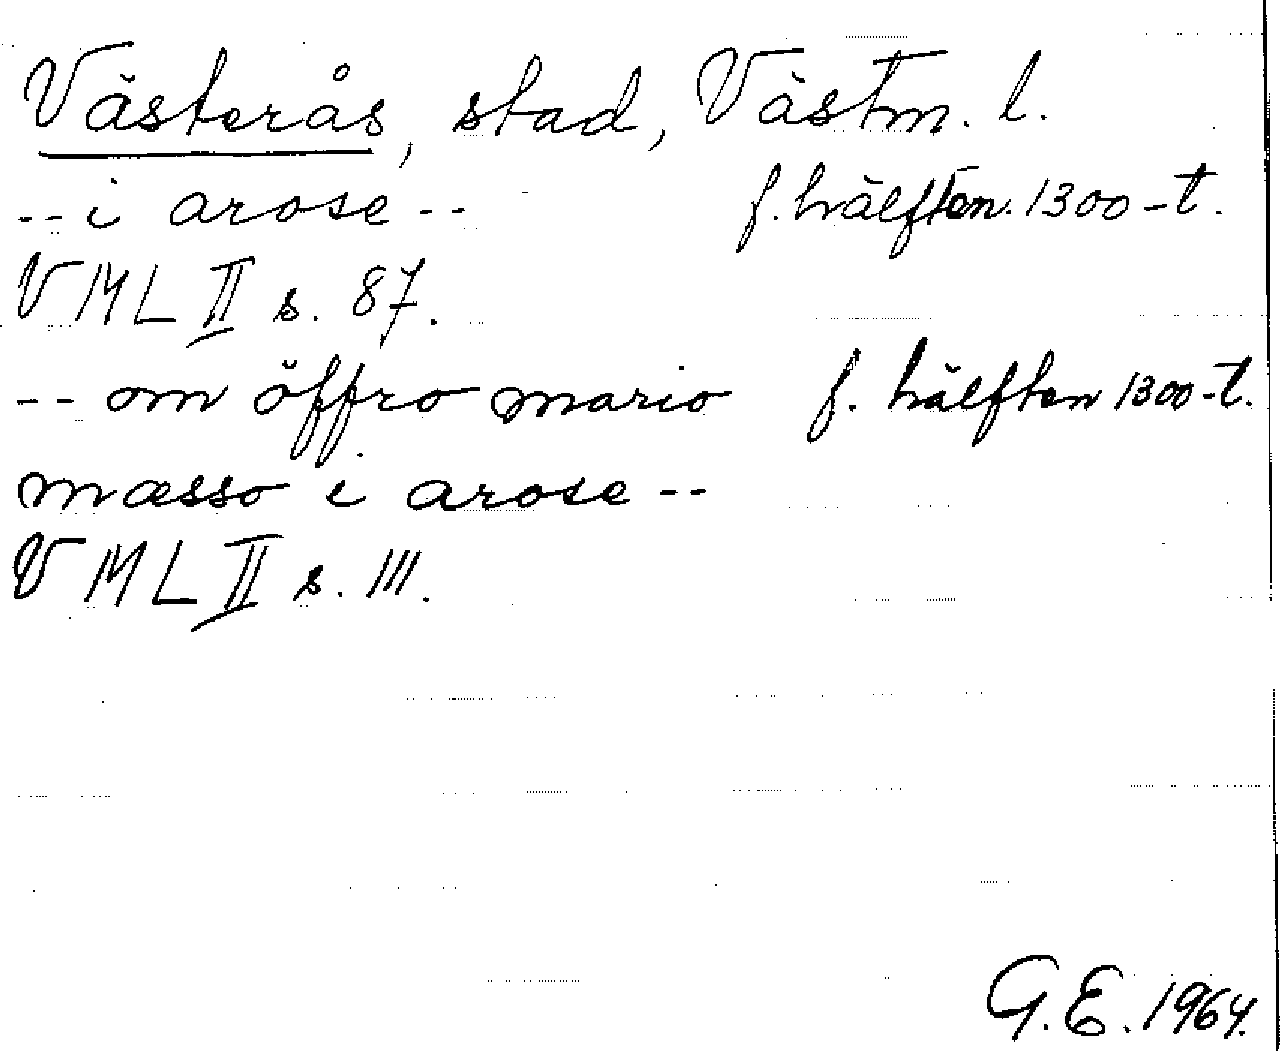 Västerås, stad, Västm. l.
-- i arose -- f. hälften. 1300-t.
VML II s. 87.
-- om öffro mario f. hälften 1300-t.
mæsso i arose --
VML II s. 111.
G.E. 1964.